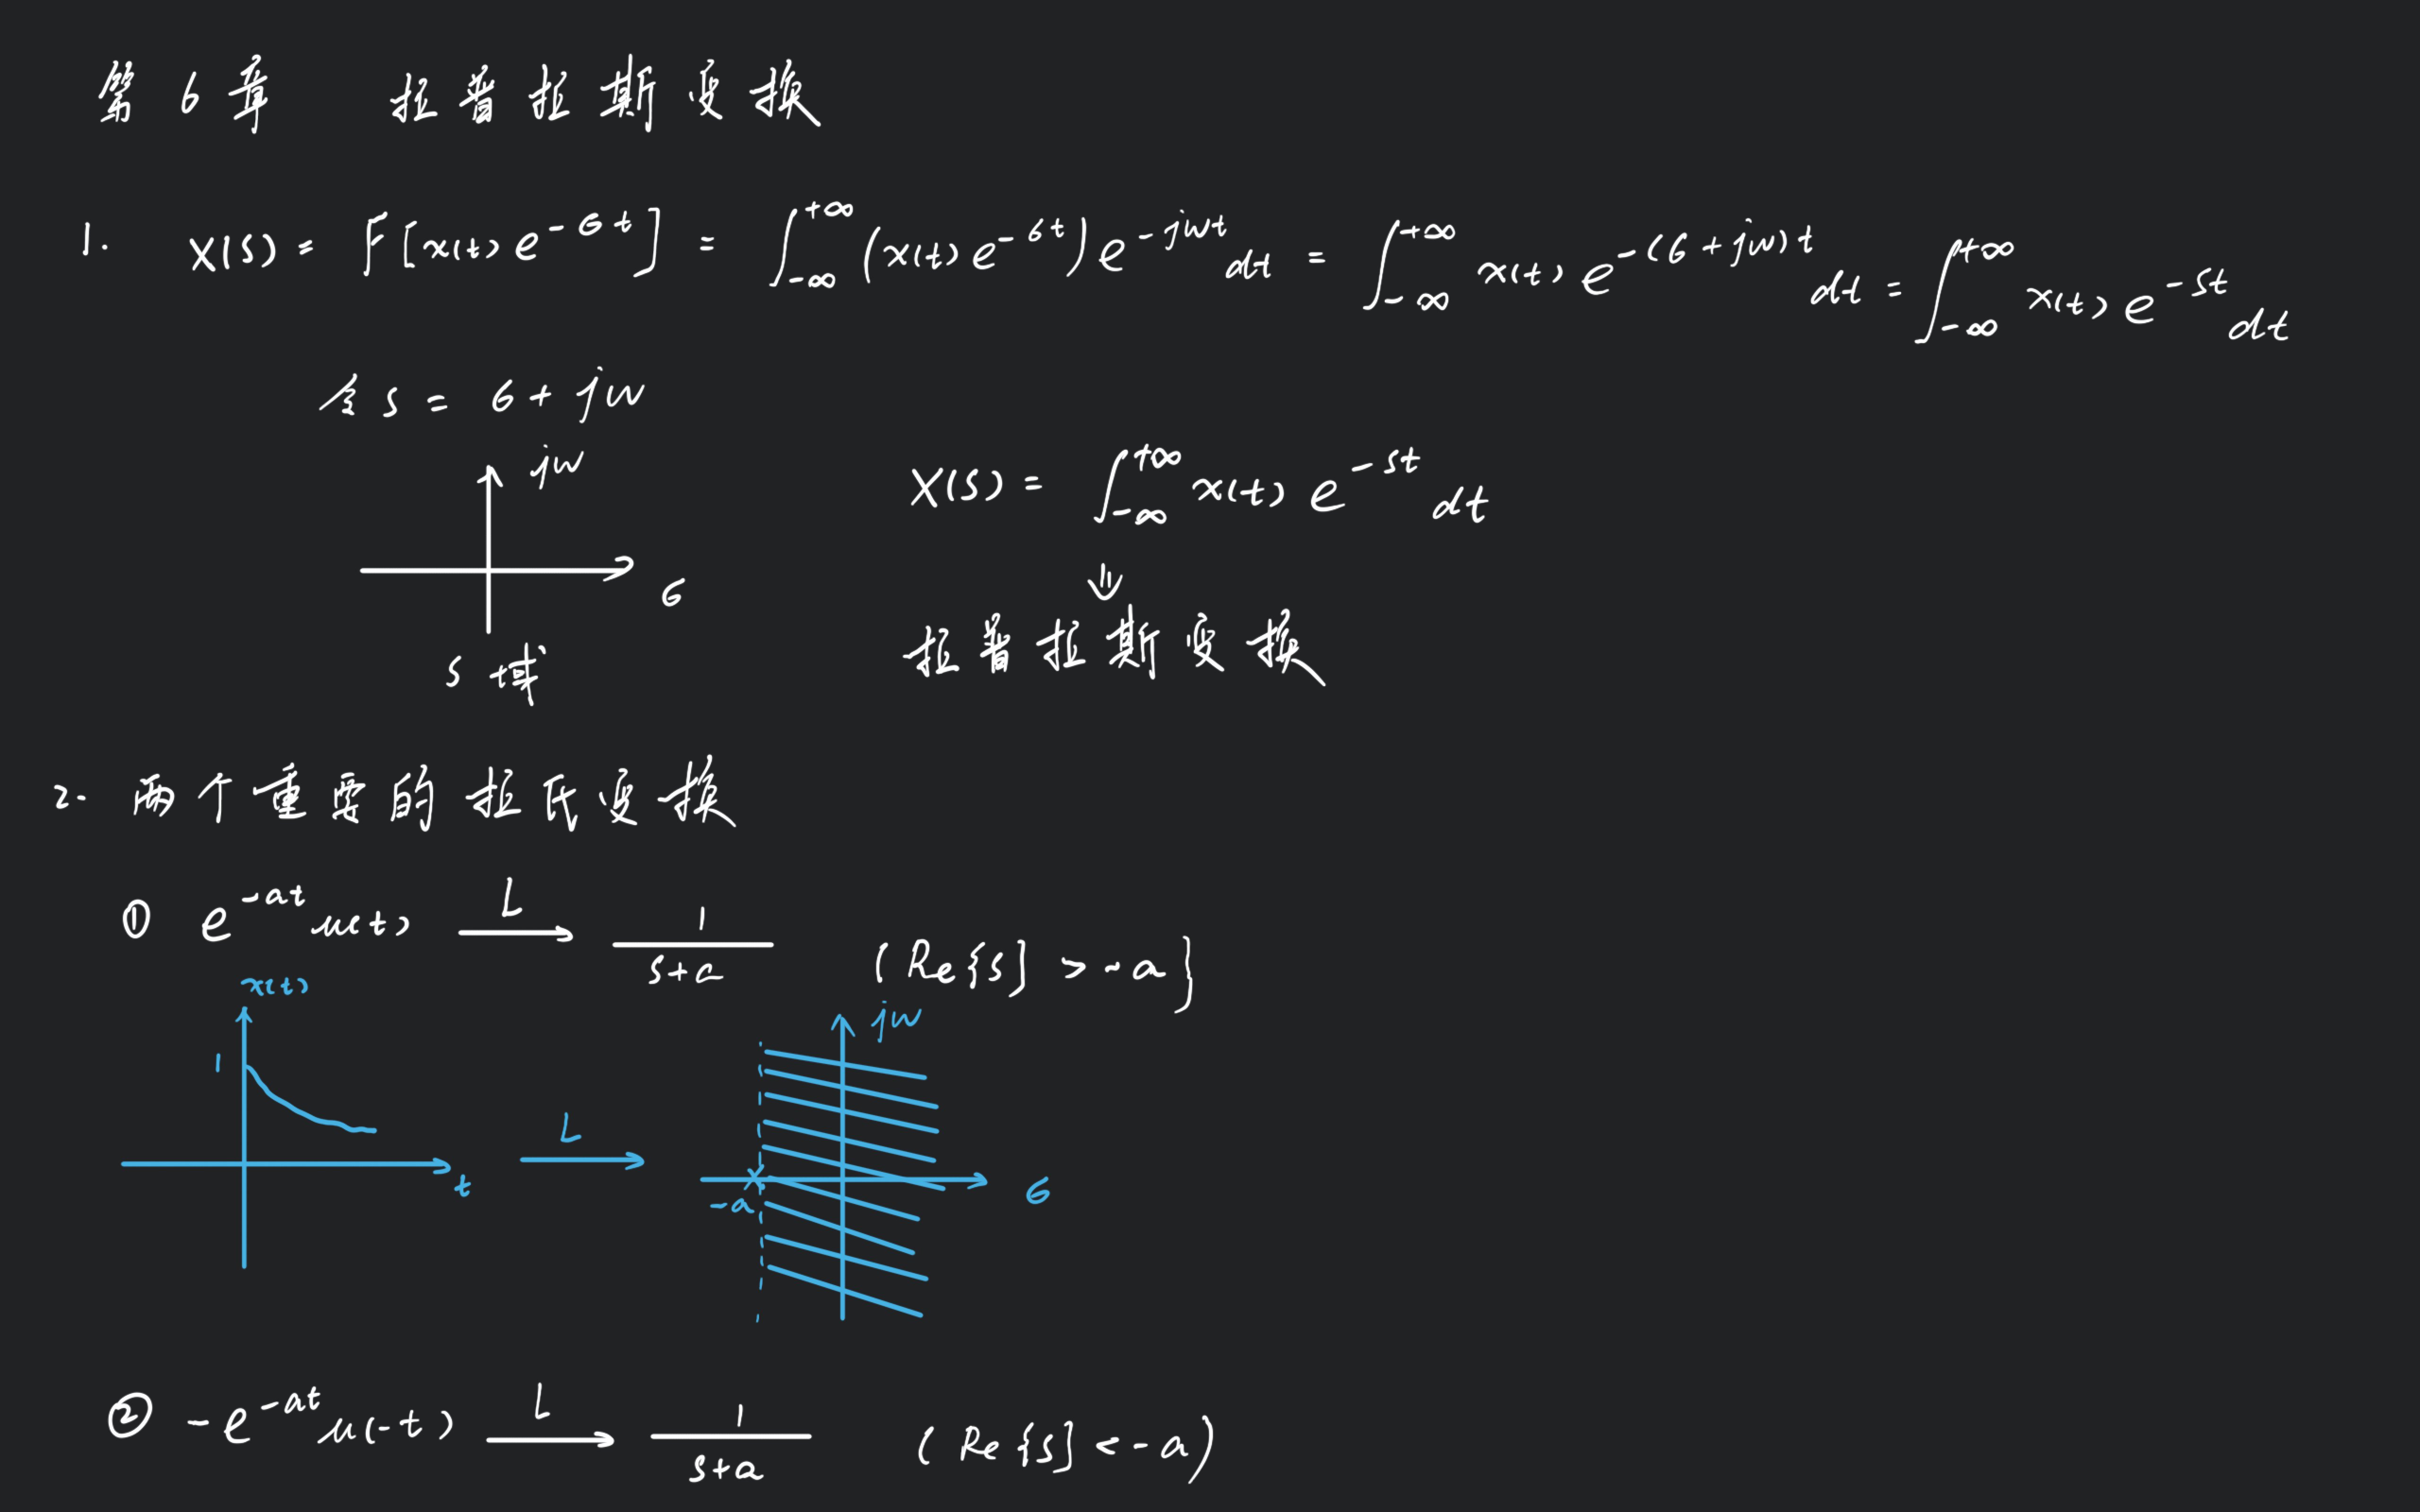 第6章 拉普拉斯变换
1. X(s) = F[x(t)e^{-σt}] = ∫_{-∞}^{+∞} (x(t)e^{-σt}) e^{-jωt} dt = ∫_{-∞}^{+∞} x(t) e^{-(σ+jω)t} dt = ∫_{-∞}^{+∞} x(t) e^{-st} dt
令 s = σ + jω
jω
σ
s 域
X(s) = ∫_{-∞}^{+∞} x(t) e^{-st} dt
⇓
拉普拉斯变换
2. 两个重要的拉氏变换
① e^{-at} u(t) \xrightarrow{L} \frac{1}{s+a} (Re{s} > -a}
x(t)
1
t
L
jω
-a
σ
② -e^{-at} u(-t) \xrightarrow{L} \frac{1}{s+a} (Re{s} < -a)